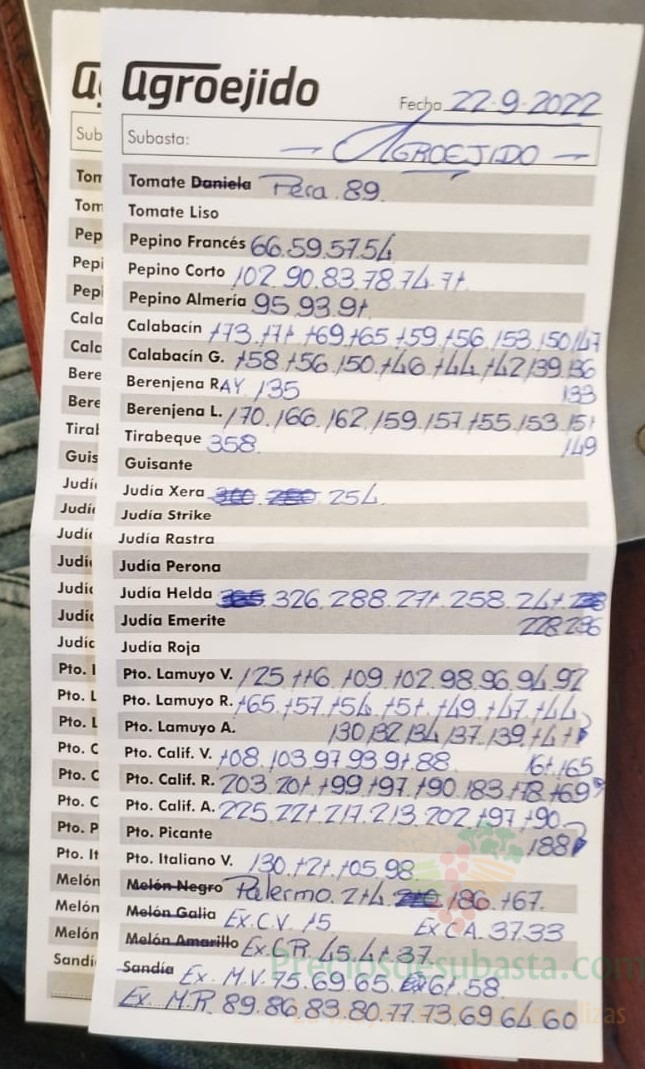 agroejido
Fecha 22-9-2022
Subasta: — AGROEJIDO —
Tomate Daniela Pera. 89.
Tomate Liso
Pepino Francés 66.59.57.54
Pepino Corto 102.90.83.78.74.71.
Pepino Almería 95.93.91
Calabacín 173.171.169.165.159.156.153.150.147
Calabacín G. 158.156.150.146.144.142.139.136
133
Berenjena RAY 135
Berenjena L. 170.166.162.159.157.155.153.151
149
Tirabeque 358.
Guisante
Judía Xera 254.
Judía Strike
Judía Rastra
Judía Perona
Judía Helda 326.288.271.258.241.
Judía Emerite 228.236
Judía Roja
Pto. Lamuyo V. 125.116.109.102.98.96.94.92
Pto. Lamuyo R. 165.157.154.151.149.147.144
Pto. Lamuyo A. 130.132.134.137.139.141
Pto. Calif. V. 108.103.97.93.91.88. 161.165
Pto. Calif. R. 203.201.199.197.190.183.178.169
Pto. Calif. A. 225.221.217.213.202.197.190
188
Pto. Picante
Pto. Italiano V. 130.121.105.98.
Melón Negro Palermo. 214. 186.167.
Melón Galia Ex.C.V. 15 Ex CA. 37.33
Melón Amarillo Ex.CR. 45.41.37.
Sandía Ex. M.V. 75.69.65. 61.58.
Ex. M.R. 89.86.83.80.77.73.69.64.60
Preciosdesubasta.com